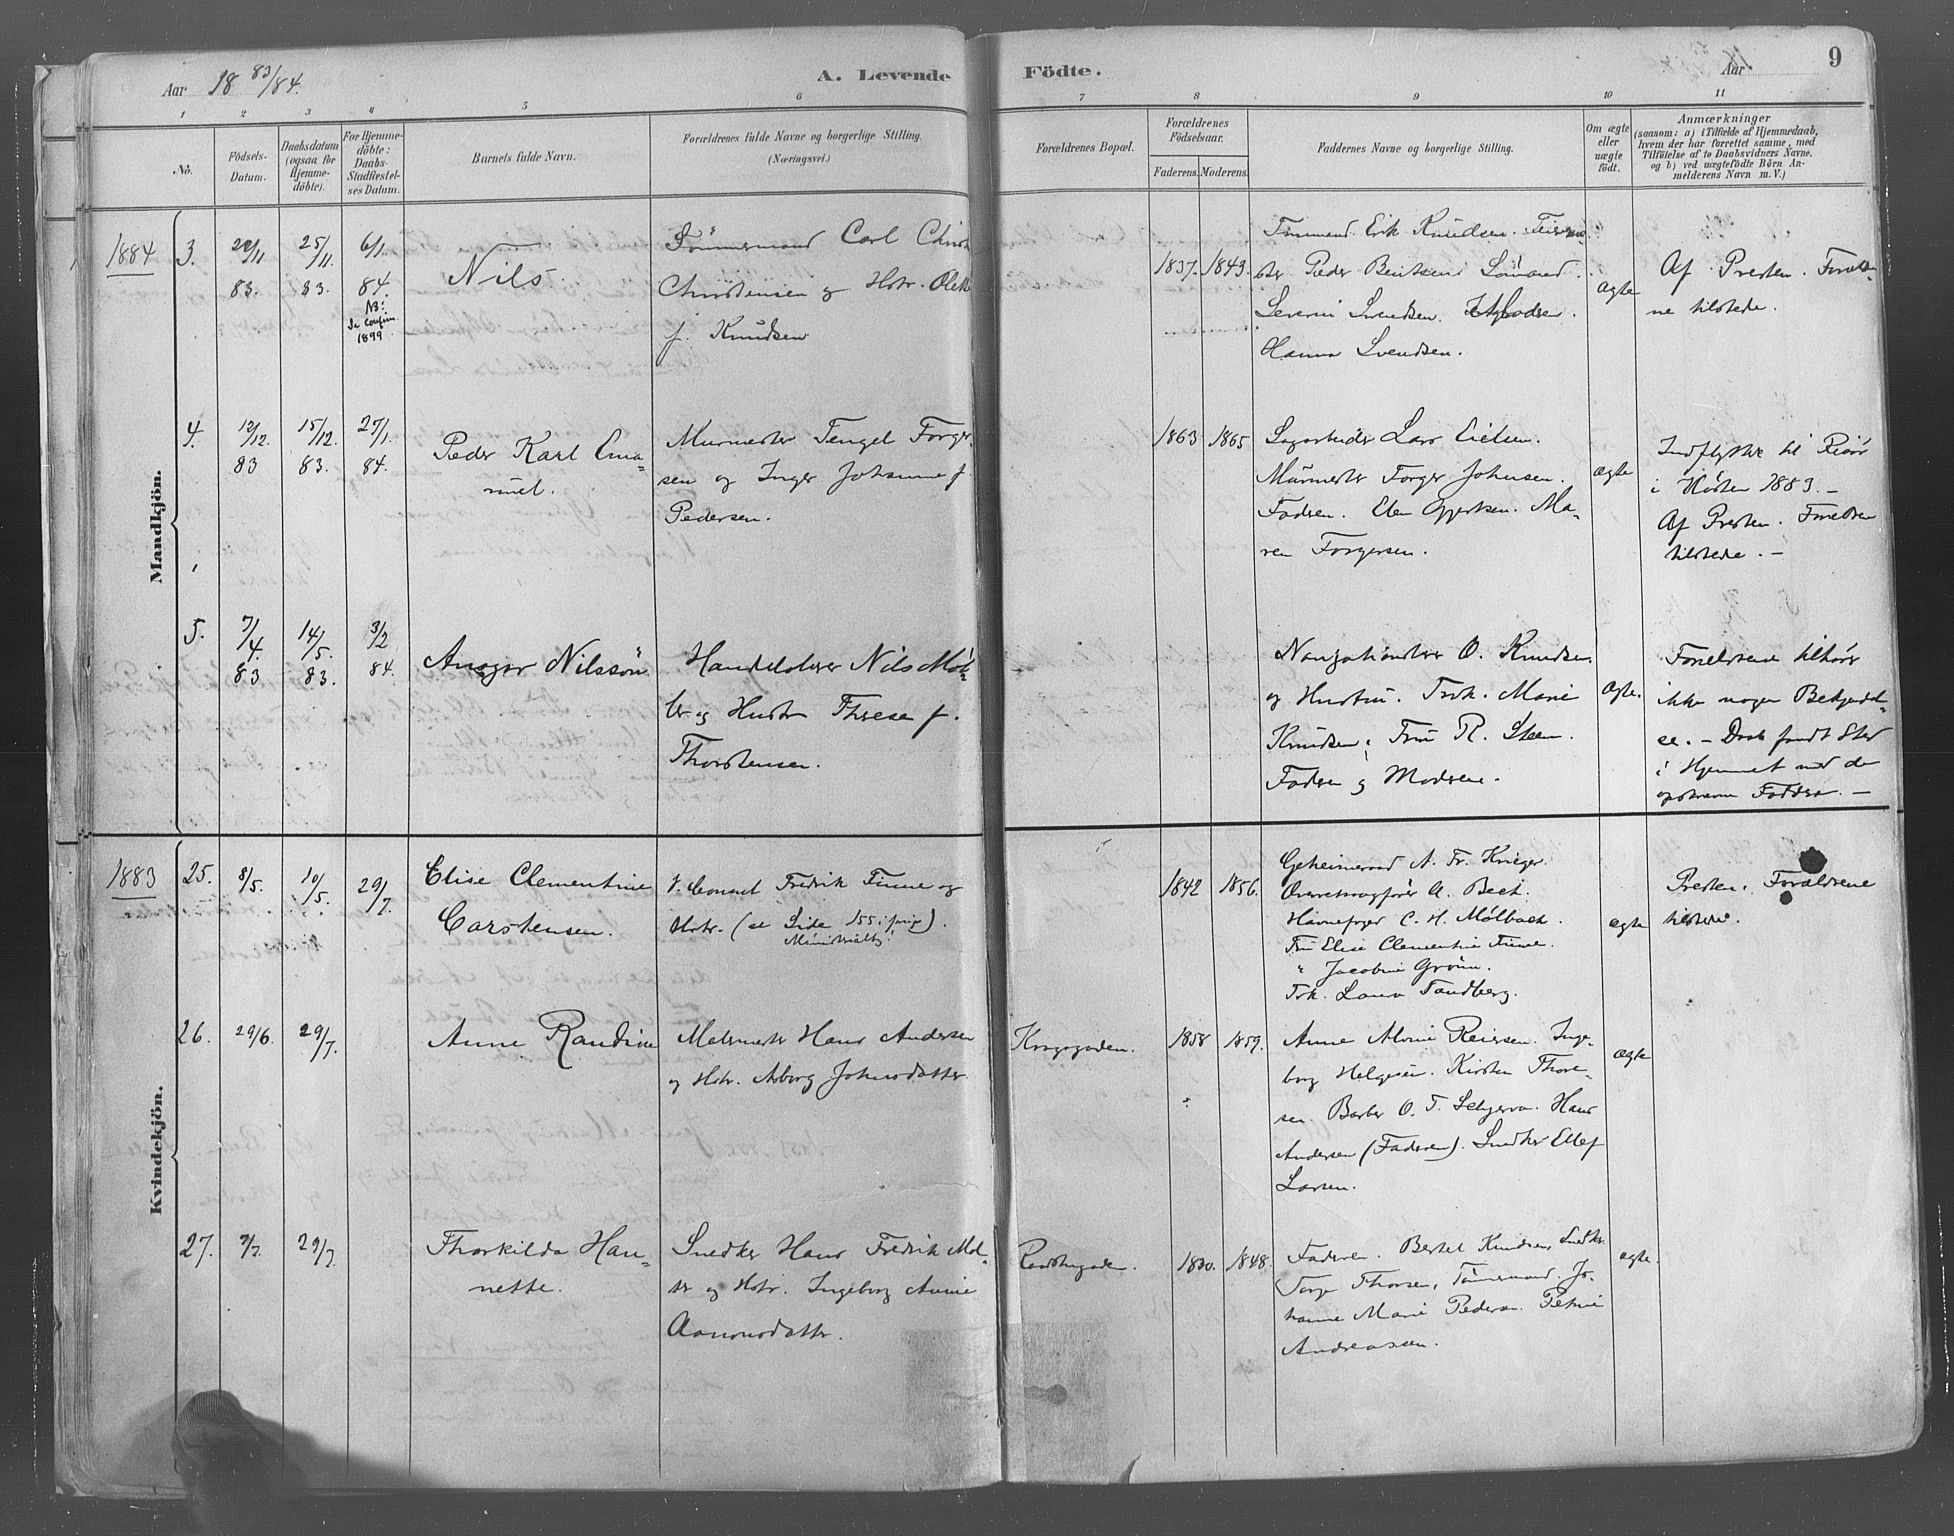 Aar 18 83/84.
A. Levende
Födte.
Aar
9
1 2 3 4 5 6 7 8 9 10 11
No.
Födsels-
Datum.
Daabsdatum
(ogsaa for
Hjemme-
döbte).
For Hjemme-
döbte:
Daabs-
Stadfæstel-
ses Datum.
Barnets fulde Navn.
Forældrenes fulde Navne og borgerlige Stilling.
(Næringsvei.)
Forældrenes Bopæl.
Forældrenes
Födselsaar.
Faderens.
Moderens.
Faddernes Navne og borgerlige Stilling.
Om ægte
eller
uægte
födt.
Anmærkninger
(saasom: a) i Tilfælde af Hjemmedaab,
hvem der har forrettet samme, med
Tilföielse af to Daabsvidners Navne.
og b) ved uægtefödte Börn An-
melderens Navn m. V.)
Mandkjön.
1884
3.
22/11
83.
25/11.
83.
6/1.
84.
NB:
1899
Nils
Tömmermand Carl Christ
Christensen og Hstr.
f. Knudsen
1837.
1843.
Erik Knudsen.
Peder Bentsen Sömand.
Severin Svendsen.
Hanna Svendsen.
ægte
Af Presten. Foræld-
ne tilstede.
4.
12/12.
83
15/12.
83.
27/1.
84.
Peder Karl Ema-
nuel.
Murmester Tengel Torger-
sen og Inger Johanne f.
Pedersen.
1863
1865
Sagarbeider Lars Eielsen.
Murmester Torger Johnsen.
Fadren. Elen Gjertsen. Ma-
ren Torgersen.
ægte
Indflyttet til Risör
i Hösten 1883. –
Af Presten. Foreldrene
tilstede. –
5.
7/4.
83
14/5.
83.
3/2
84.
Ansgar Nilssön
Handelsbexr Nils Möl-
ler og Hustr Threse f.
Thorstensen.
O. Knudsen
og Hustru. Frk. Marie
Knudsen. Fru R. Steen.
Fadren og Modren.
ægte.
Foreldrene tilhörer
ikke nogen Bekjendel-
se. – Daab fandt Sted
i Hjemmet med de
opskrevne Faddre. –
Kvindekjön.
1883
25.
8/5.
10/5.
29/7.
Elise Clementine
Carstensen.
V. Consul Fredrik Finne og
Hstr. (se Side 155 i forige
Ministerialbg.).
1842
1856.
Geheimeraad A. Fr. Krieger.
Overretssagförer A. Beck.
Havnefoged C. H. Mølbach.
Fru Elise Clementine Finne.
" Jacobine Grönn.
Frk. Laura Tandberg.
ægte
Presten. Forældrene
tilstede.
26.
29/6.
29/7.
Anne Randine
Malermester Hans Andersen
og Hstr. Asborg Johnsdatter
Kragsgaden.
1858
1859.
Anne Marie Reiersen. Inge-
borg Helgesen. Kirsten Thore-
sen. Barber O. T. Schjerva. Hans
Andersen (Faderen). Snedker Ellef
Larsen.
ægte
27.
9/7.
29/7.
Thorkilda Han-
nette.
Snedker Hans Fredrik Mol-
og Hstr. Ingeborg Anne
Aanonsdatter.
1830.
1848.
Faderen. Bertel Knudsen, Snedker.
Torge Thorsen, Tömmermand. Jo-
hanne Marie Pedersen. Petrine
Andreassen.
ægte.